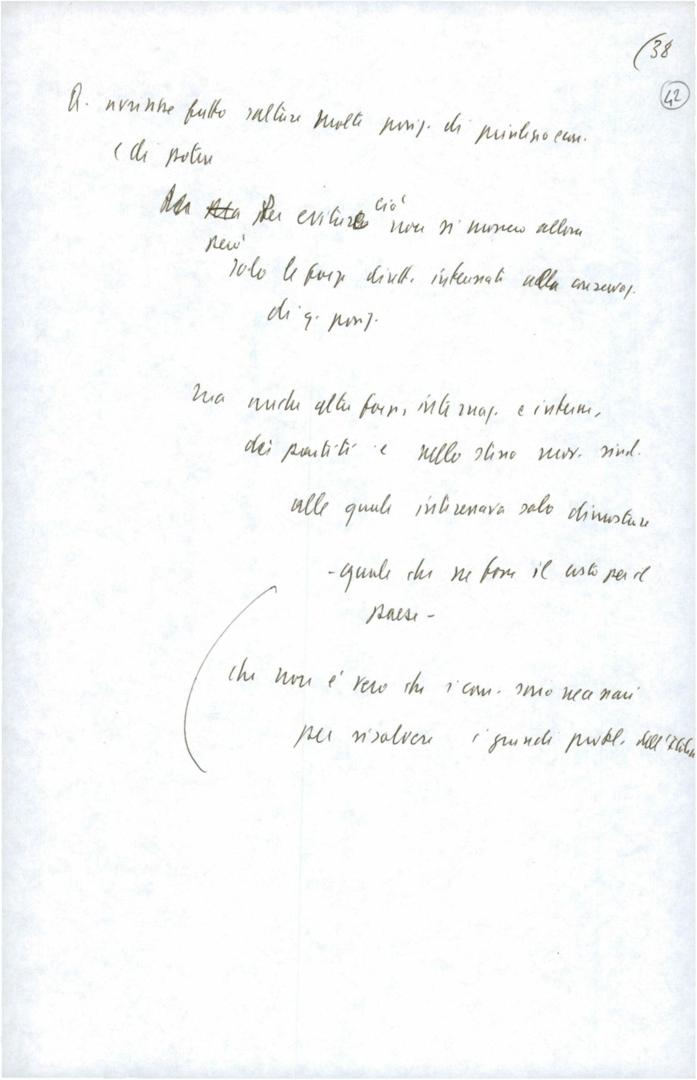 (38
42
Q. avrebbe fatto saltare molte posiz. di privilegio econ.
e di potere
Per evitare ciò non si mossero allora
però
solo le forze dirett. interessate alla conservaz.
di q. posiz.
ma anche altre forze, internaz. e interne,
dei partiti e nello stesso mov. sind.
alle quali interessava solo dimostrare
- quale che ne fosse il costo per il
paese -
che non è vero che i com. sono necessari
per risolvere i grandi probl. dell'Italia